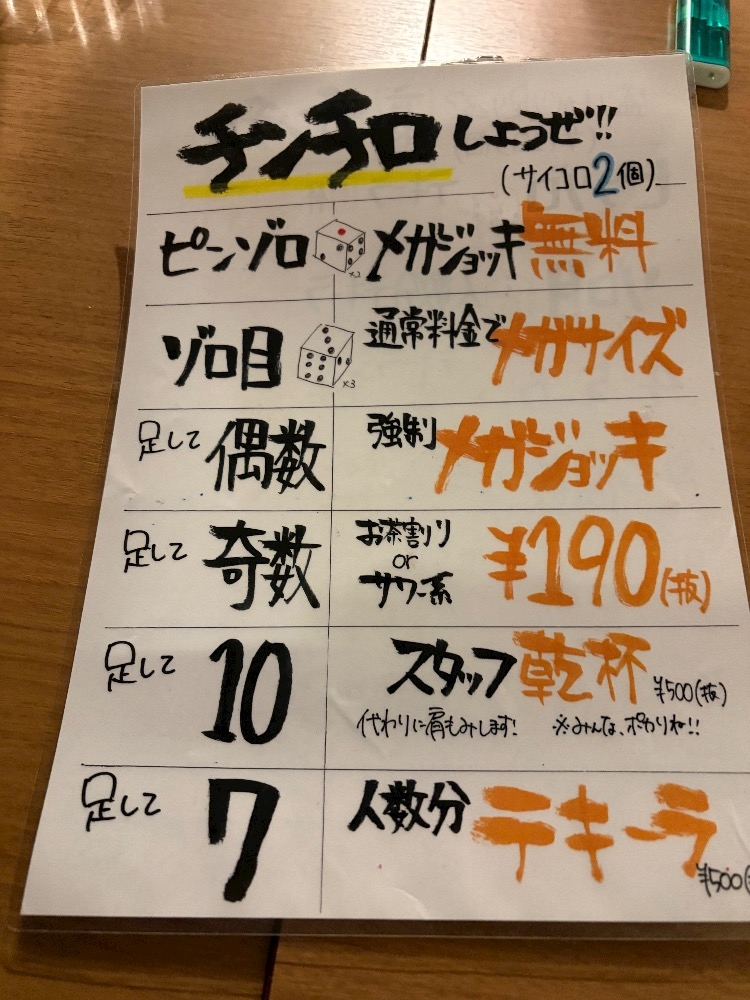 チンチロしようぜ!!
(サイコロ2個)
ピンゾロ x2 メガジョッキ無料
ゾロ目 x3 通常料金でメガサイズ
足して 偶数 強制メガジョッキ
足して 奇数 お茶割り or サワー系 ¥190(抜)
足して 10 スタッフ乾杯 ¥500(抜)
代わりに肩もみします! ※みんな、ポカリね!!
足して 7 人数分テキーラ
¥500(